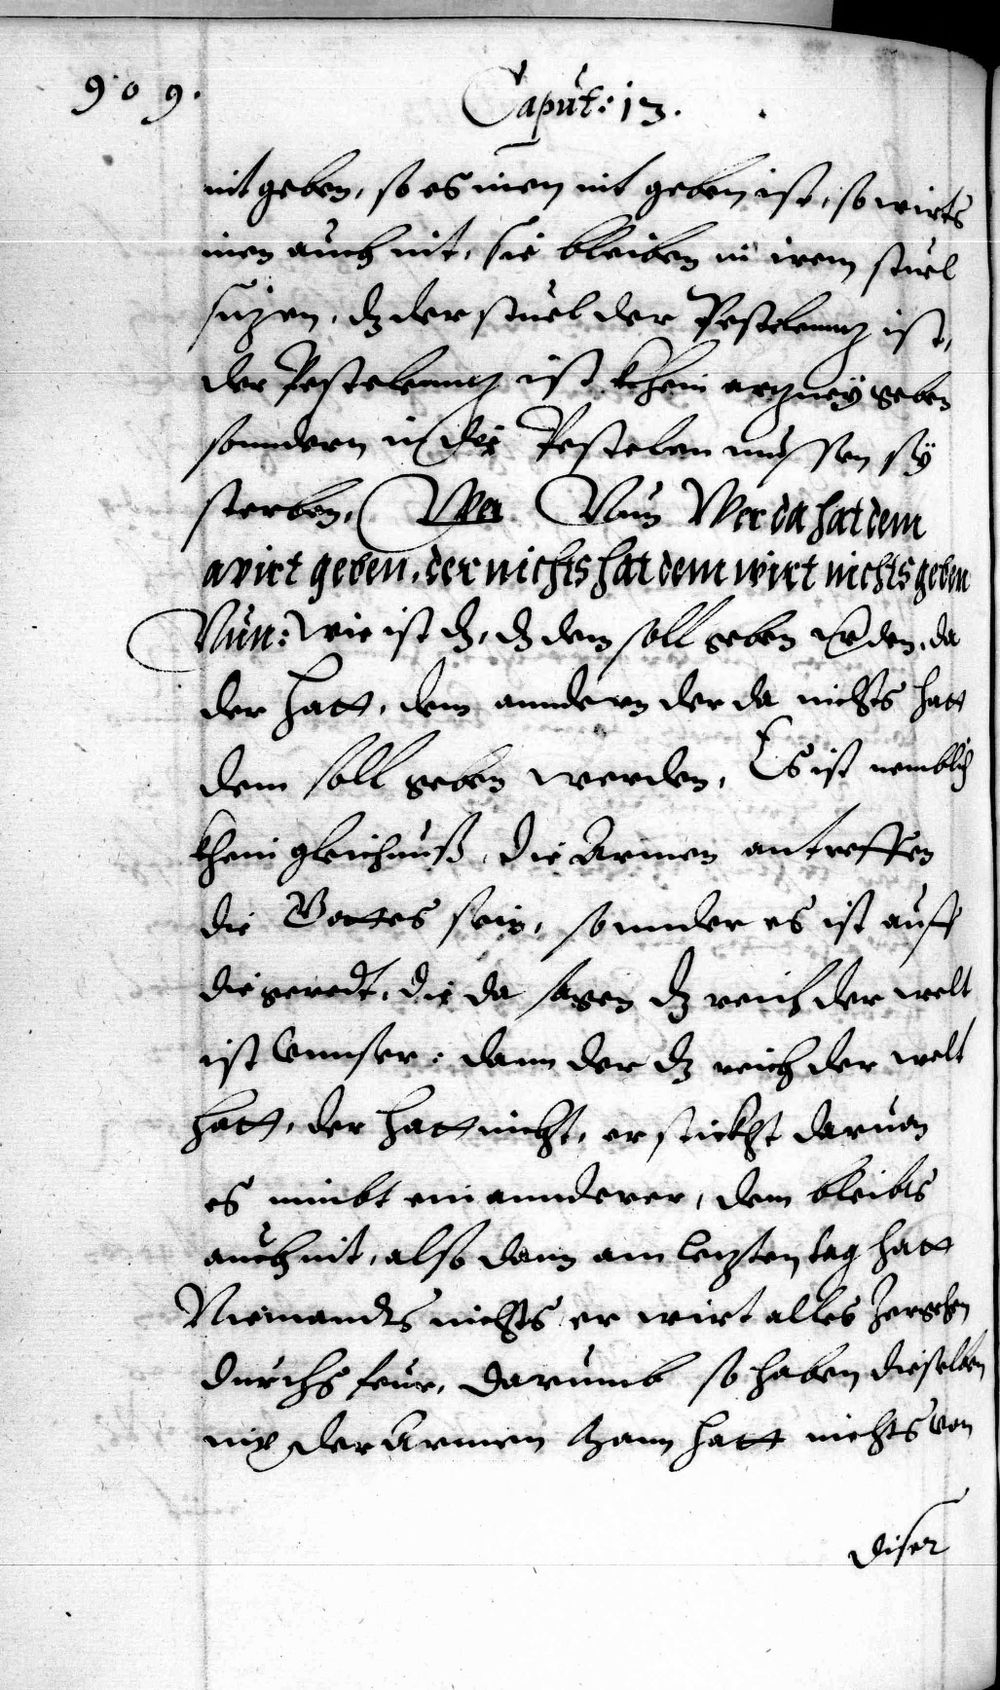 909.
Caput: 13.
nit geben, so es inen nit geben ist, so wirts
inen auch nit, sie bleiben in irem stuel
sitzen, dz der stuel der Pestelentz ist,
der Pestelentz ist khein artzney geben
sonndern in der Pestelen müssen sy
sterben, Wer Nun Wer da hat dem
wirt geben, der nichts hat dem wirt nichts geben
Nun: wie ist dz, dz dem soll geben werden, da
der hatt, dem anndern der da nichts hatt
dem soll geben werden, Es ist nemblich
khein gleichnuß, die Armen antreffen
die Gottes sein, sonnder es ist auff
die geredt, die da sagen dz reich der welt
ist vnnser: dann der dz reich der welt
hatt, der hatt nicht, er stirbt daruon
es nimbt ein annderer, dem bleibts
auch nit, also dann am letzten tag hatt
Niemandts nichts, er wirt alles
durchs feur, darumb so haben dieselben
nix der Armen hann hatt nichts von
diser